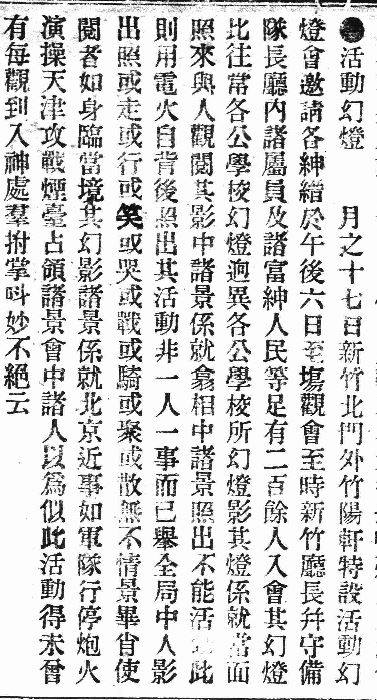 ●活動幻燈　　月之十七日新竹北門外竹陽軒特設活動幻
燈會邀請各紳縉於午後六日至塲觀會至時新竹廳長幷守備
隊長廳內諸屬員及諸富紳人民等足有二百餘人入會其幻燈
比往常各公學校幻燈逈異各公學校所幻燈影其燈係就當面
照來與人觀閱其影中諸景係就翕相中諸景照出不能活 此
則用電火自背後照出其活動非一人一事而已舉全局中人影
出照或走或行或笑或哭或戰或騎或聚或散無不情景畢肖使
閱者如身臨當境其幻影諸景係就北京近事如軍隊行停炮火
演操天津攻戰煙臺占領諸景會中諸人以爲似此活動得未曾
有每觀到入神處羣拊掌叫妙不絕云